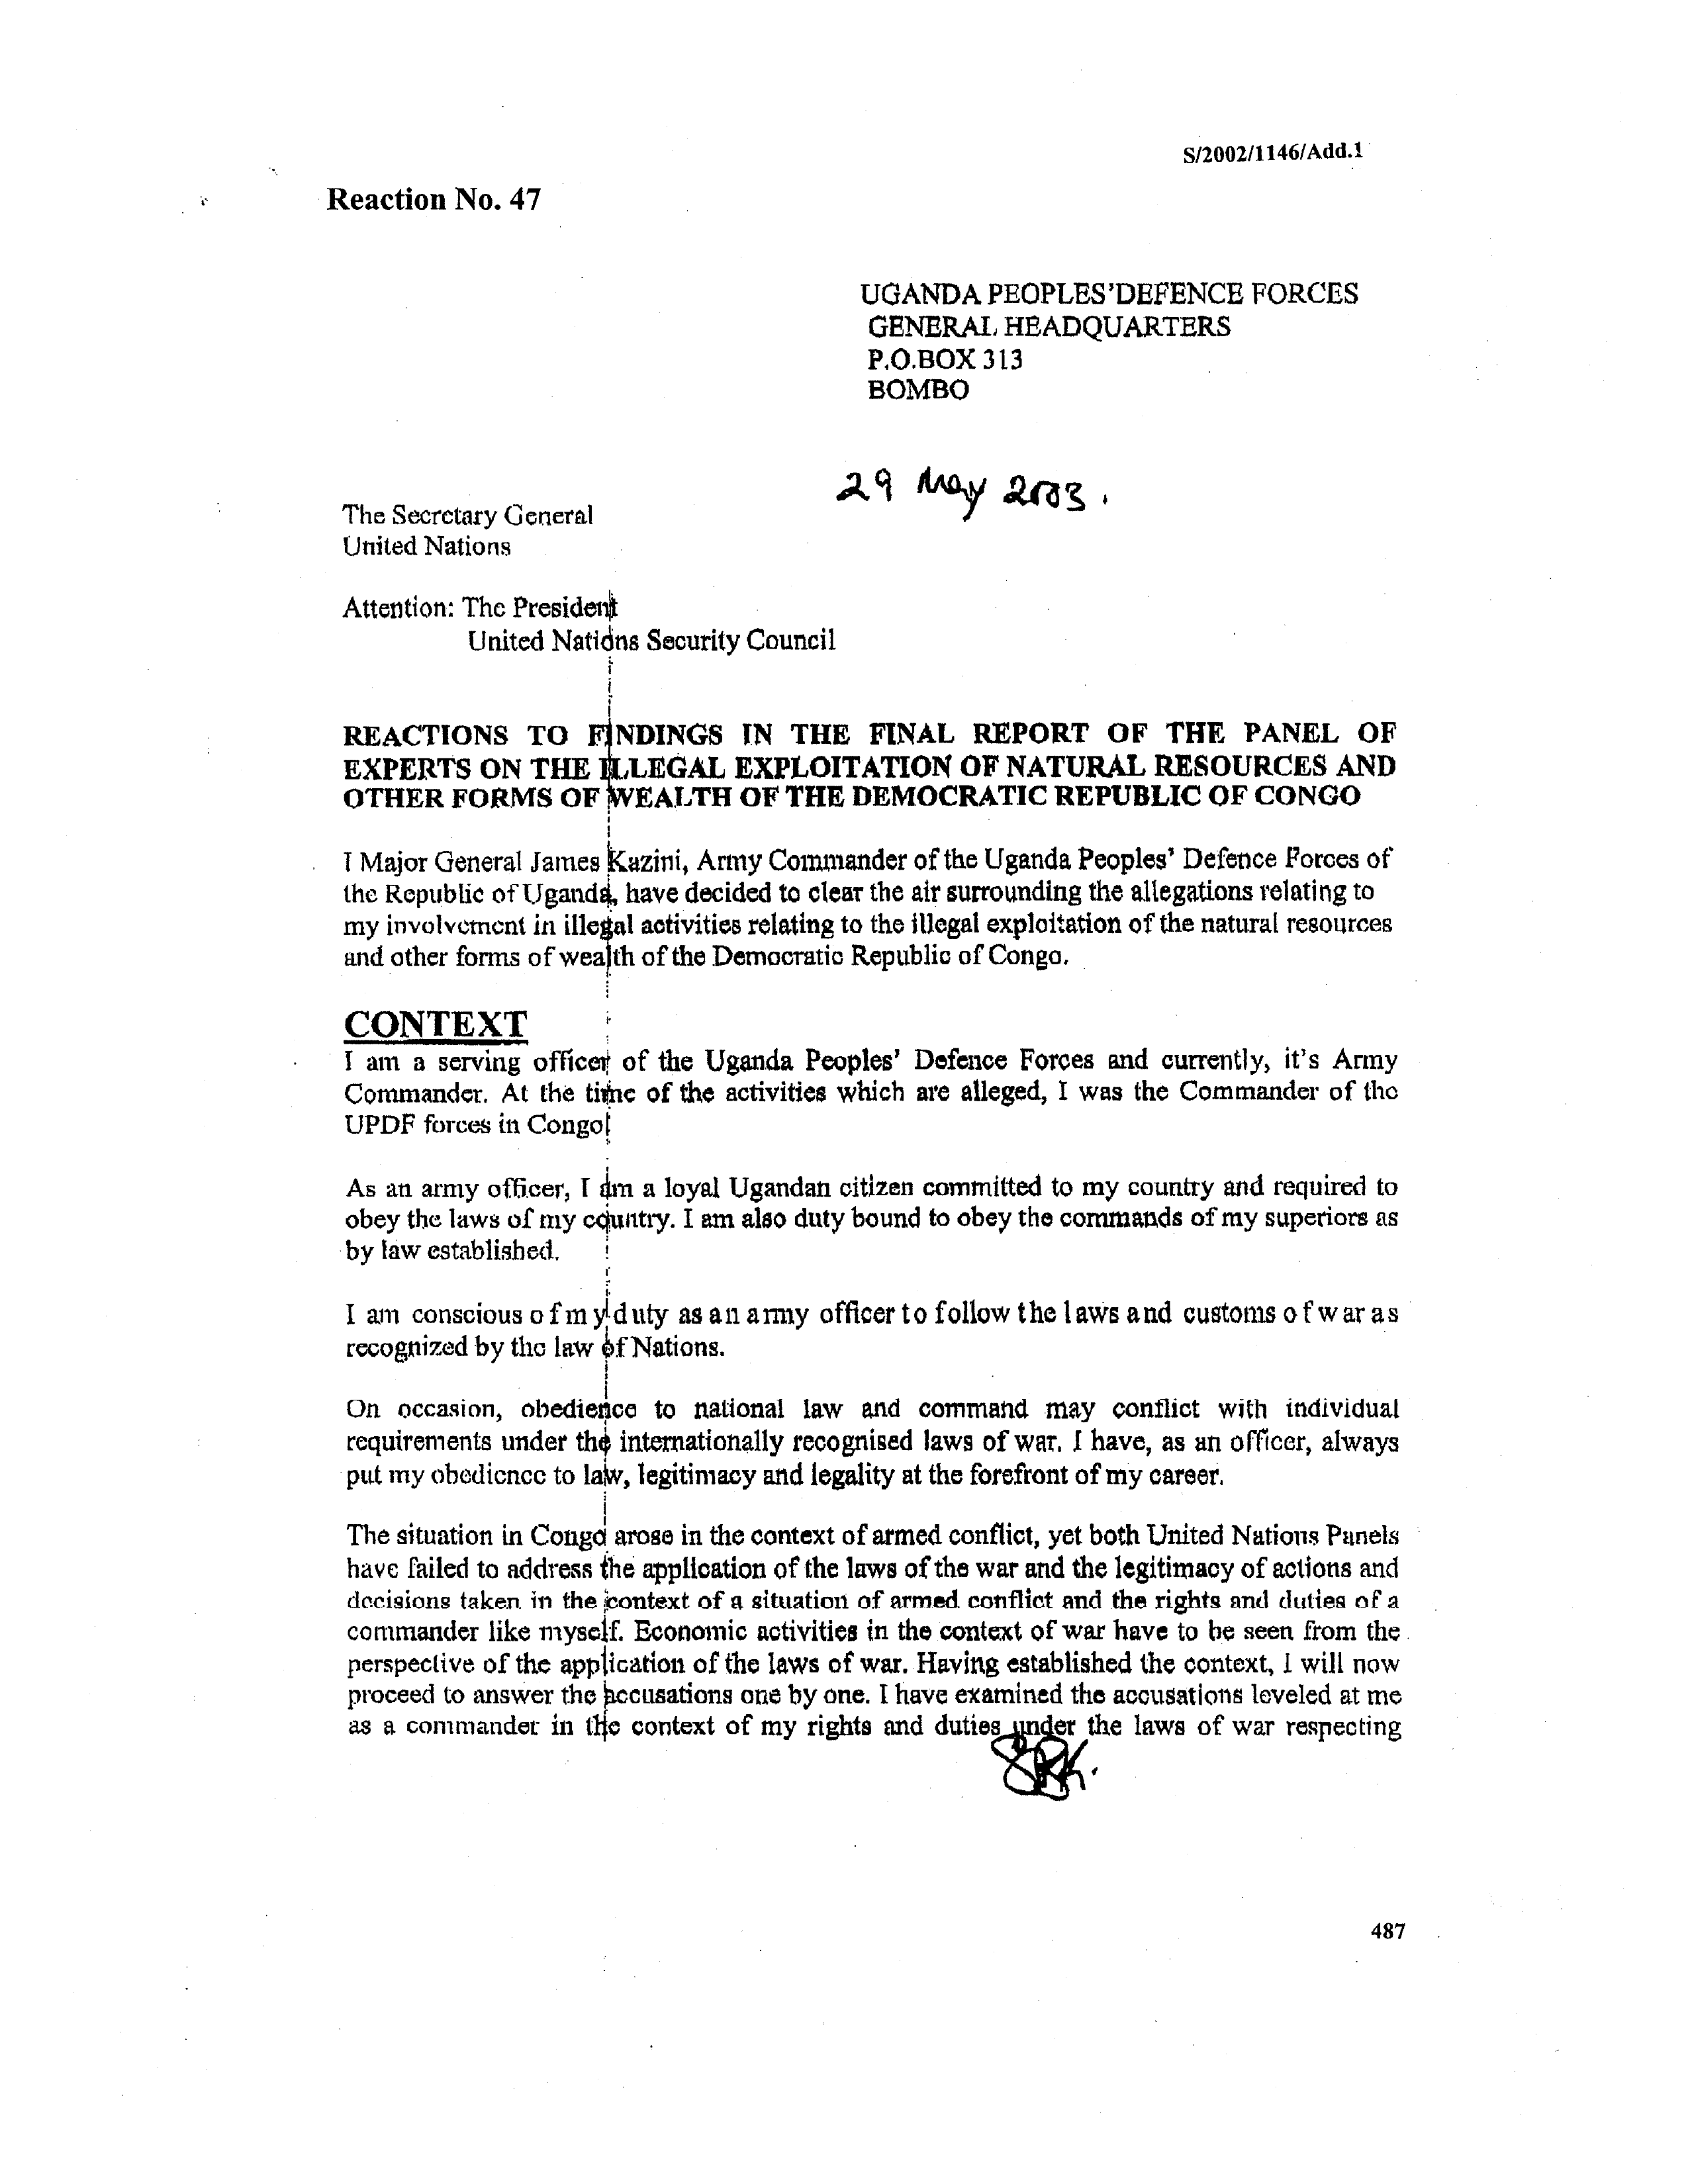 S/2002/1146/Add.1
Reaction No. 47
UGANDA PEOPLES'DEFENCE FORCES
GENERAL HEADQUARTERS
P.O.BOX 313
BOMBO
29 May 2003.
The Secretary General
United Nations
Attention: The President
United Nations Security Council
REACTIONS TO FINDINGS IN THE FINAL REPORT OF THE PANEL OF
EXPERTS ON THE ILLEGAL EXPLOITATION OF NATURAL RESOURCES AND
OTHER FORMS OF WEALTH OF THE DEMOCRATIC REPUBLIC OF CONGO
I Major General James Kazini, Army Commander of the Uganda Peoples' Defence Forces of
the Republic of Uganda, have decided to clear the air surrounding the allegations relating to
my involvement in illegal activities relating to the illegal exploitation of the natural resources
and other forms of wealth of the Democratic Republic of Congo.
CONTEXT
I am a serving officer of the Uganda Peoples' Defence Forces and currently, it's Army
Commander. At the time of the activities which are alleged, I was the Commander of the
UPDF forces in Congo.
As an army officer, I am a loyal Ugandan citizen committed to my country and required to
obey the laws of my country. I am also duty bound to obey the commands of my superiors as
by law established.
I am conscious of my duty as an army officer to follow the laws and customs of war as
recognized by the law of Nations.
On occasion, obedience to national law and command may conflict with individual
requirements under the internationally recognised laws of war. I have, as an officer, always
put my obedience to law, legitimacy and legality at the forefront of my career.
The situation in Congo arose in the context of armed conflict, yet both United Nations Panels
have failed to address the application of the laws of the war and the legitimacy of actions and
decisions taken in the context of a situation of armed conflict and the rights and duties of a
commander like myself. Economic activities in the context of war have to be seen from the
perspective of the application of the laws of war. Having established the context, I will now
proceed to answer the accusations one by one. I have examined the accusations leveled at me
as a commander in the context of my rights and duties under the laws of war respecting
487